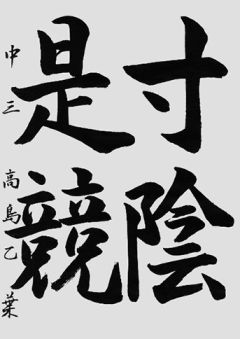 寸陰
是競
中三 高島乙葉